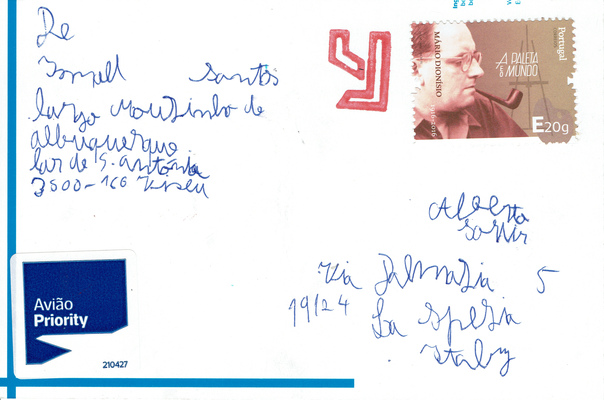 De
Santos
largo Mouzinho de
albuquerque
lar de S. António
3500-160 Viseu
MÁRIO DIONÍSIO
A PALETA
E O MUNDO
Portugal
E20g
Alberto
Via Dalmazia 5
19124 La Spezia
Italy
Avião
Priority
210427